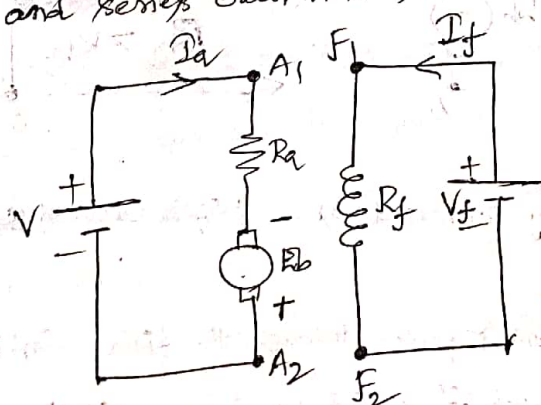 and series
Ia
A1
F1
If
+
V
-
Ra
-
Eb
+
Rf
+
Vf
-
A2
F2